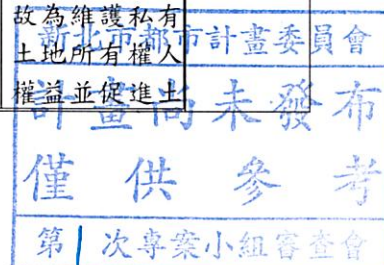 故為維護私有
土地所有權人
權益並促進土
新北市都市計畫委員會
計畫尚未發布
僅供參考
第1次專案小組審查會